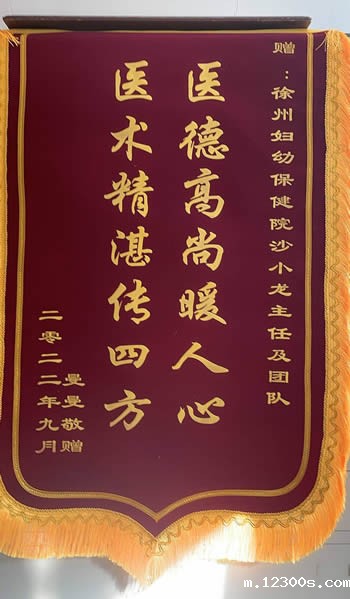 赠：徐州妇幼保健院沙小龙主任及团队
医德高尚暖人心
医术精湛传四方
曼曼敬赠
二零二二年九月
m.12300s.com